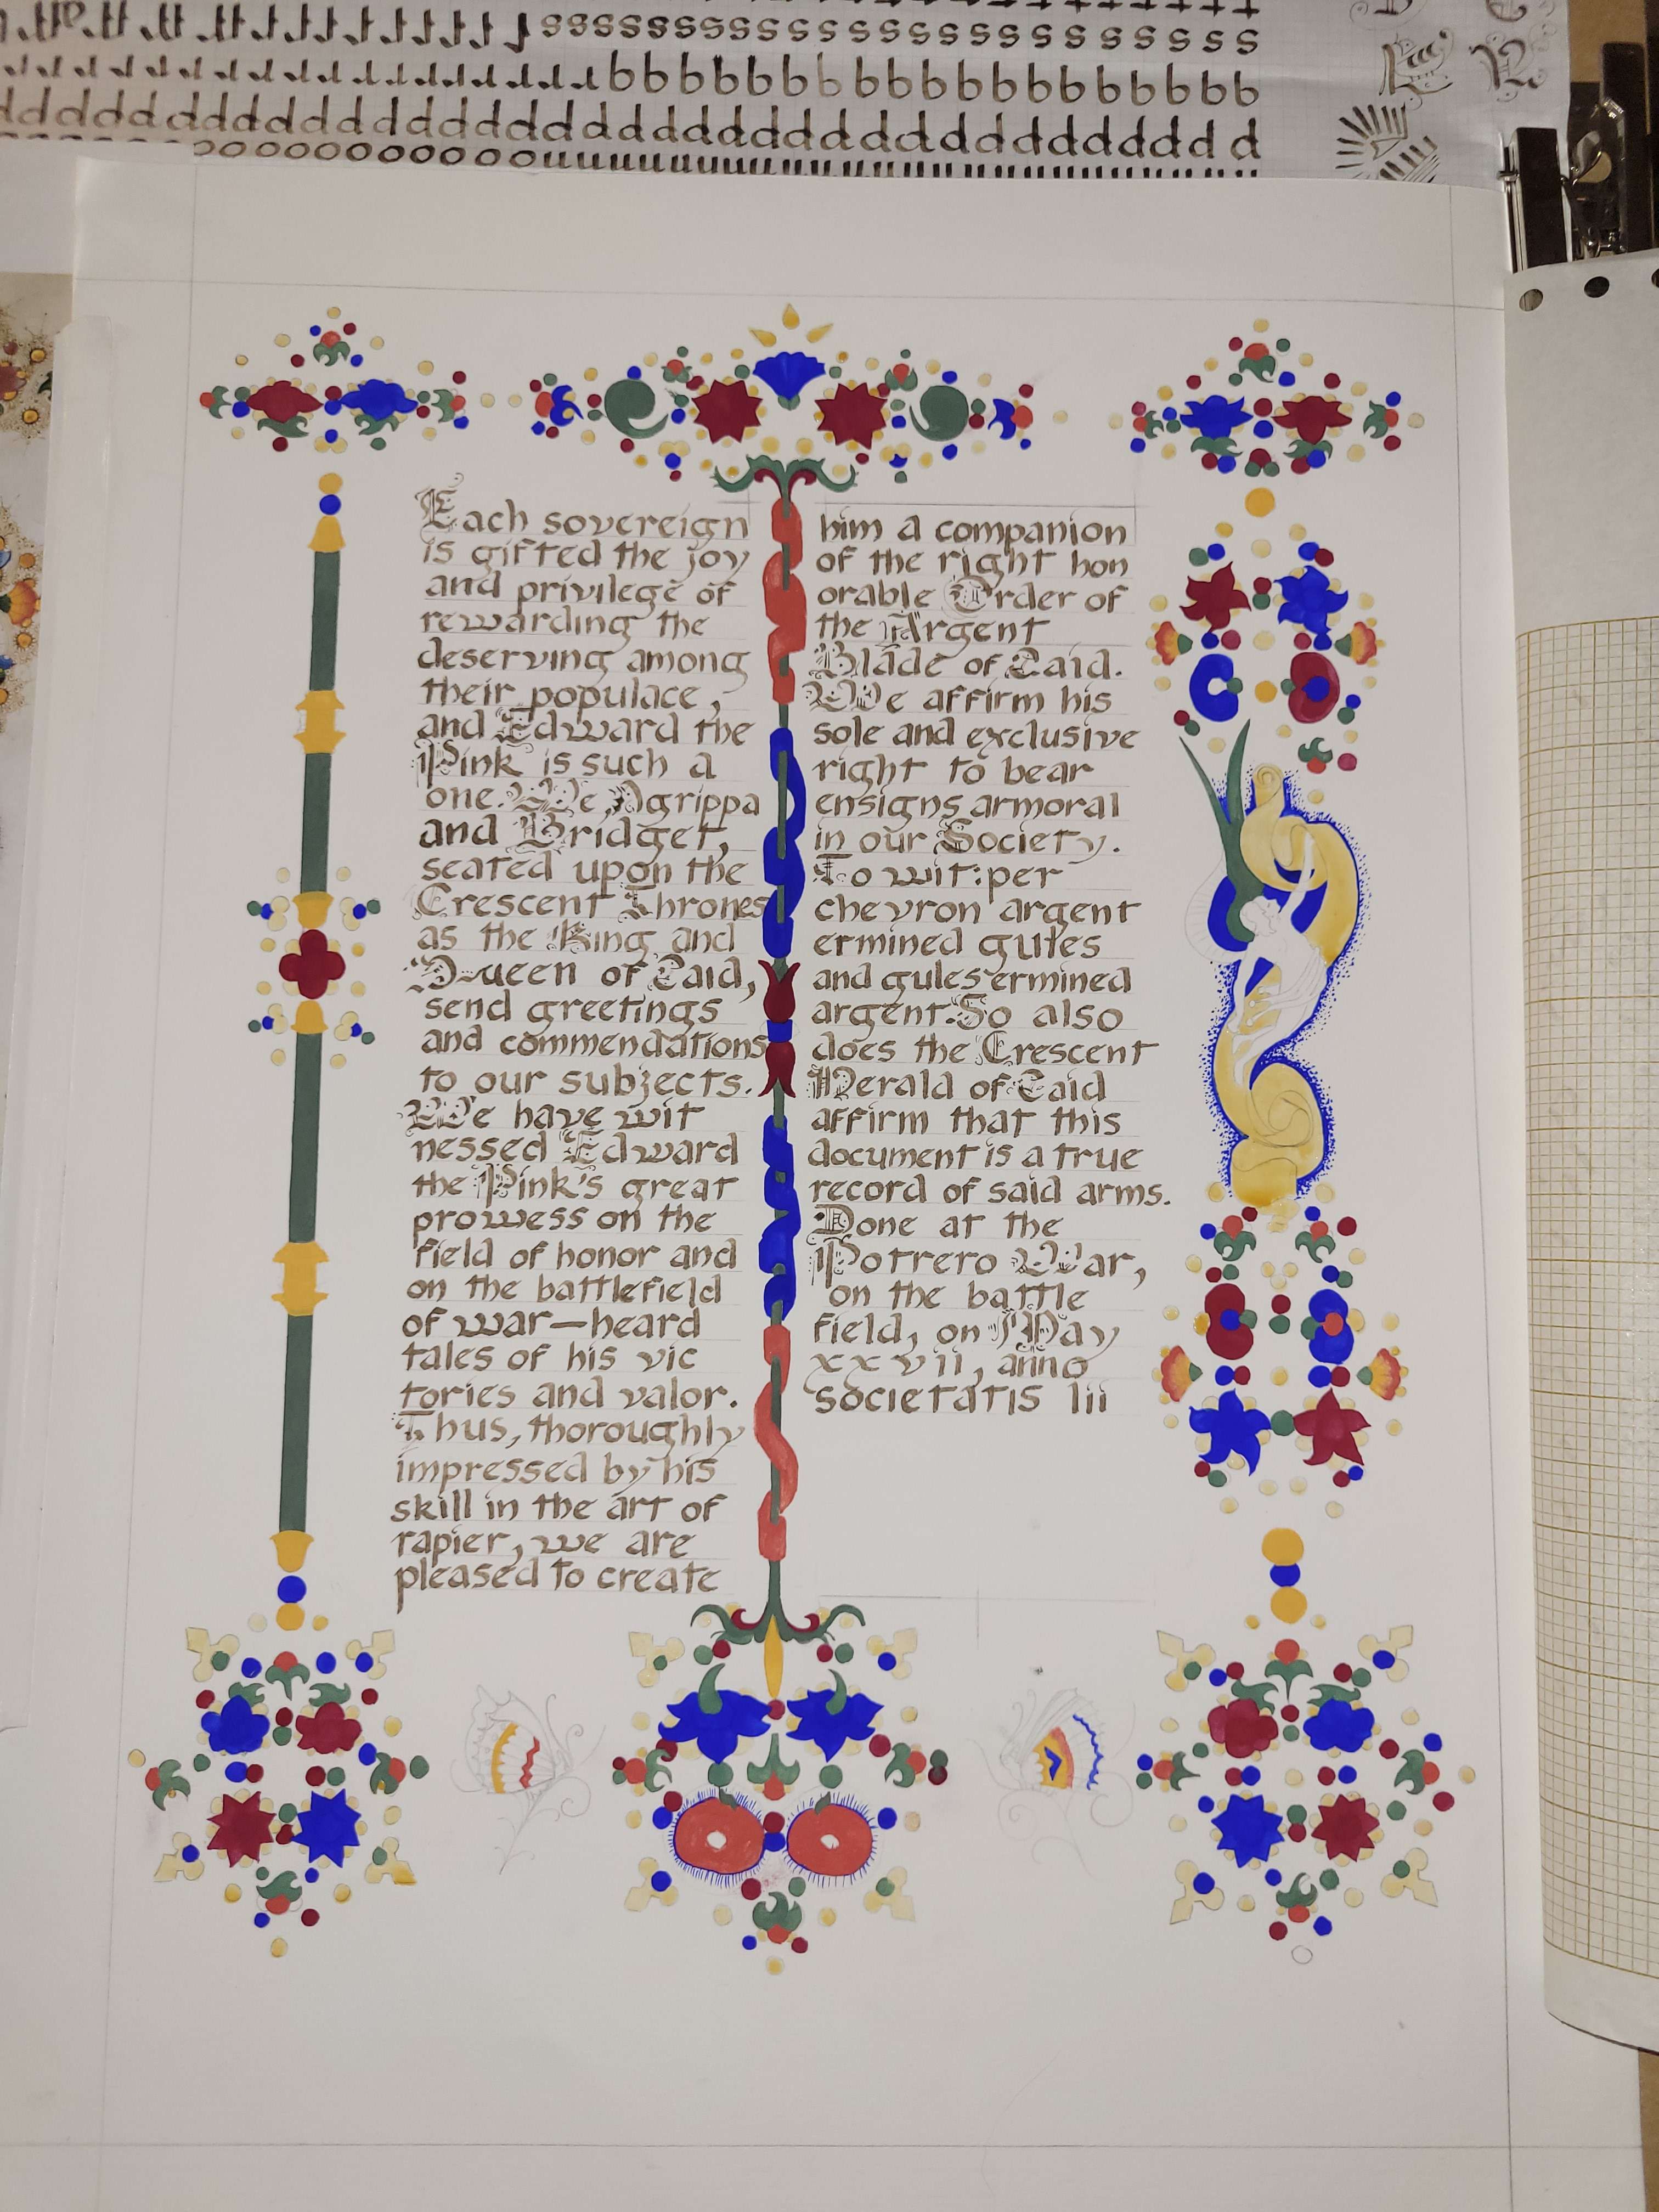 sssssssssssssssssssssssssss
bbbbbbbbbbbbbbbbbbb
ddddddddddddddddddddddddddddddd
ooooooooooooouuuuuuuuuu
Each sovereign
is gifted the joy
and privilege of
rewarding the
deserving among
their populace,
and Edward the
Pink is such a
one. We, Agrippa
and Bridget,
seated upon the
Crescent Thrones
as the King and
Queen of Caid,
send greetings
and commendations
to our subjects.
We have wit
nessed Edward
the Pink's great
prowess on the
field of honor and
on the battlefield
of war—heard
tales of his vic
tories and valor.
Thus, thoroughly
impressed by his
skill in the art of
rapier, we are
pleased to create
him a companion
of the right hon
orable Order of
the Argent
Blade of Caid.
We affirm his
sole and exclusive
right to bear
ensigns armoral
in our Society.
To wit: per
chevron argent
ermined gules
and gules ermined
argent. So also
does the Crescent
Herald of Caid
affirm that this
document is a true
record of said arms.
Done at the
Potrero War,
on the battle
field, on May
xxvii, anno
societatis lii